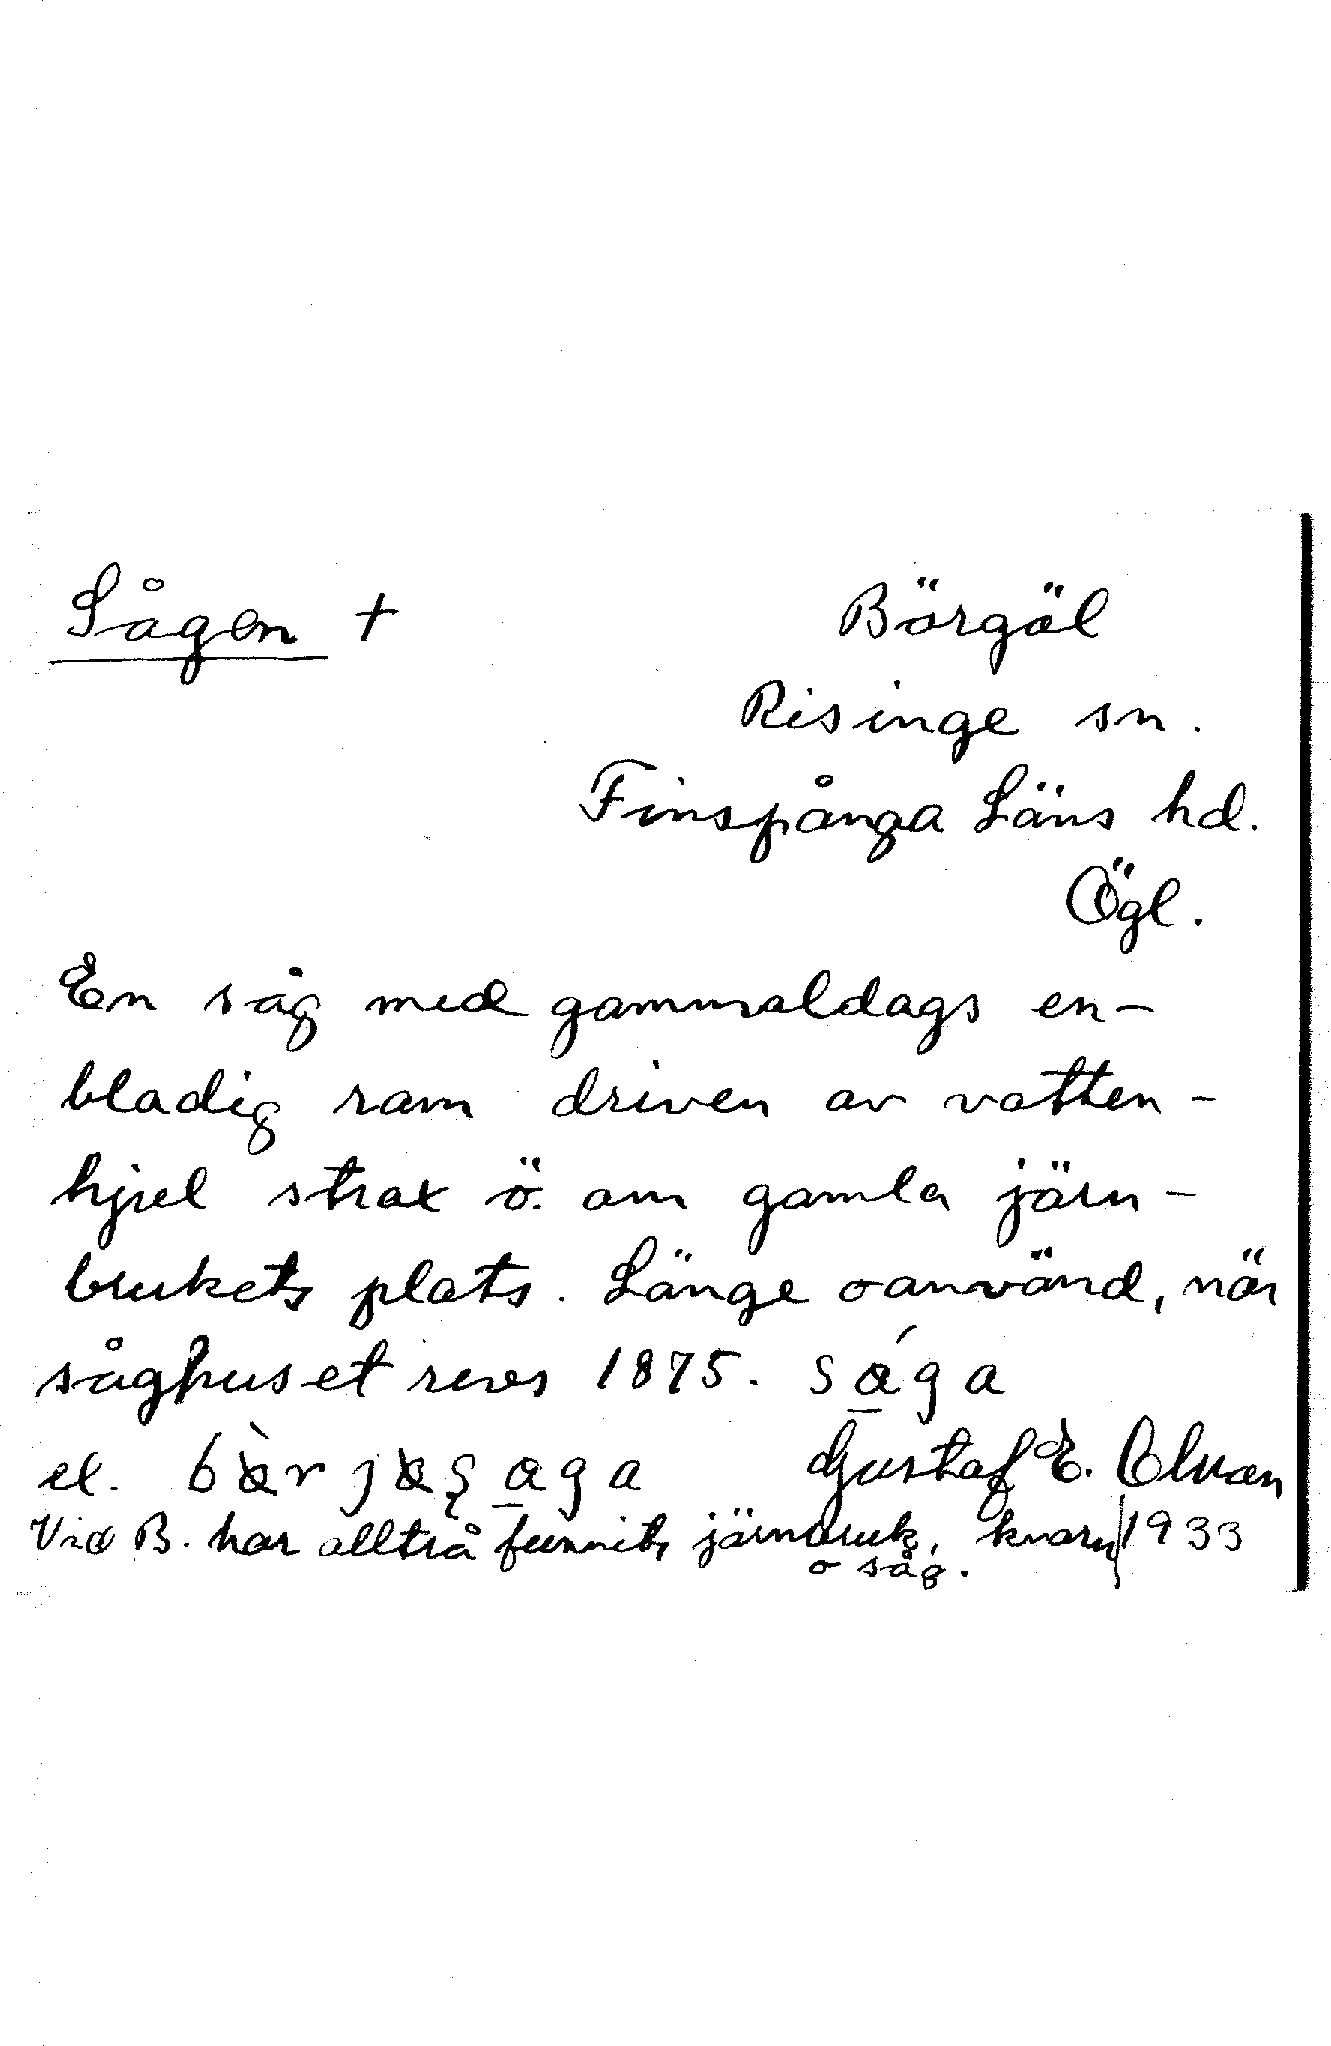 Sågen +
Börgöl
Risinge sn.
Finspånga Läns hd.
Ögl.
En såg med gammaldags en-
bladig ram driven av vatten-
hjul strax ö. om gamla järn-
brukets plats. Länge oanvänd, när
såghuset revs 1875. sága
el. bàrjaşaga Gustaf E. Olman
Vid B. har alltså funnits järnbruk, kvarn 1933
o såg.